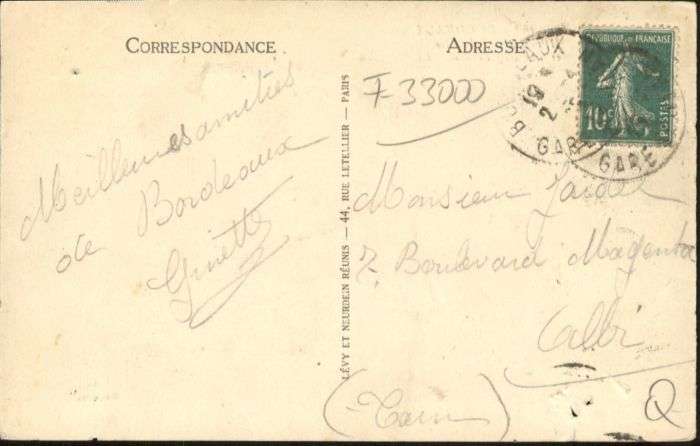 CORRESPONDANCE
ADRESSE
F-33000
RÉPUBLIQUE FRANÇAISE
10c
POSTES
BORDEAUX
19
2
GARE
GARE
Meilleures amitiés
de Bordeaux
Ginette
LÉVY ET NEURDEIN RÉUNIS — 44, RUE LETELLIER — PARIS
Monsieur
7, Boulevard Magenta
Albi
(Tarn)
Q